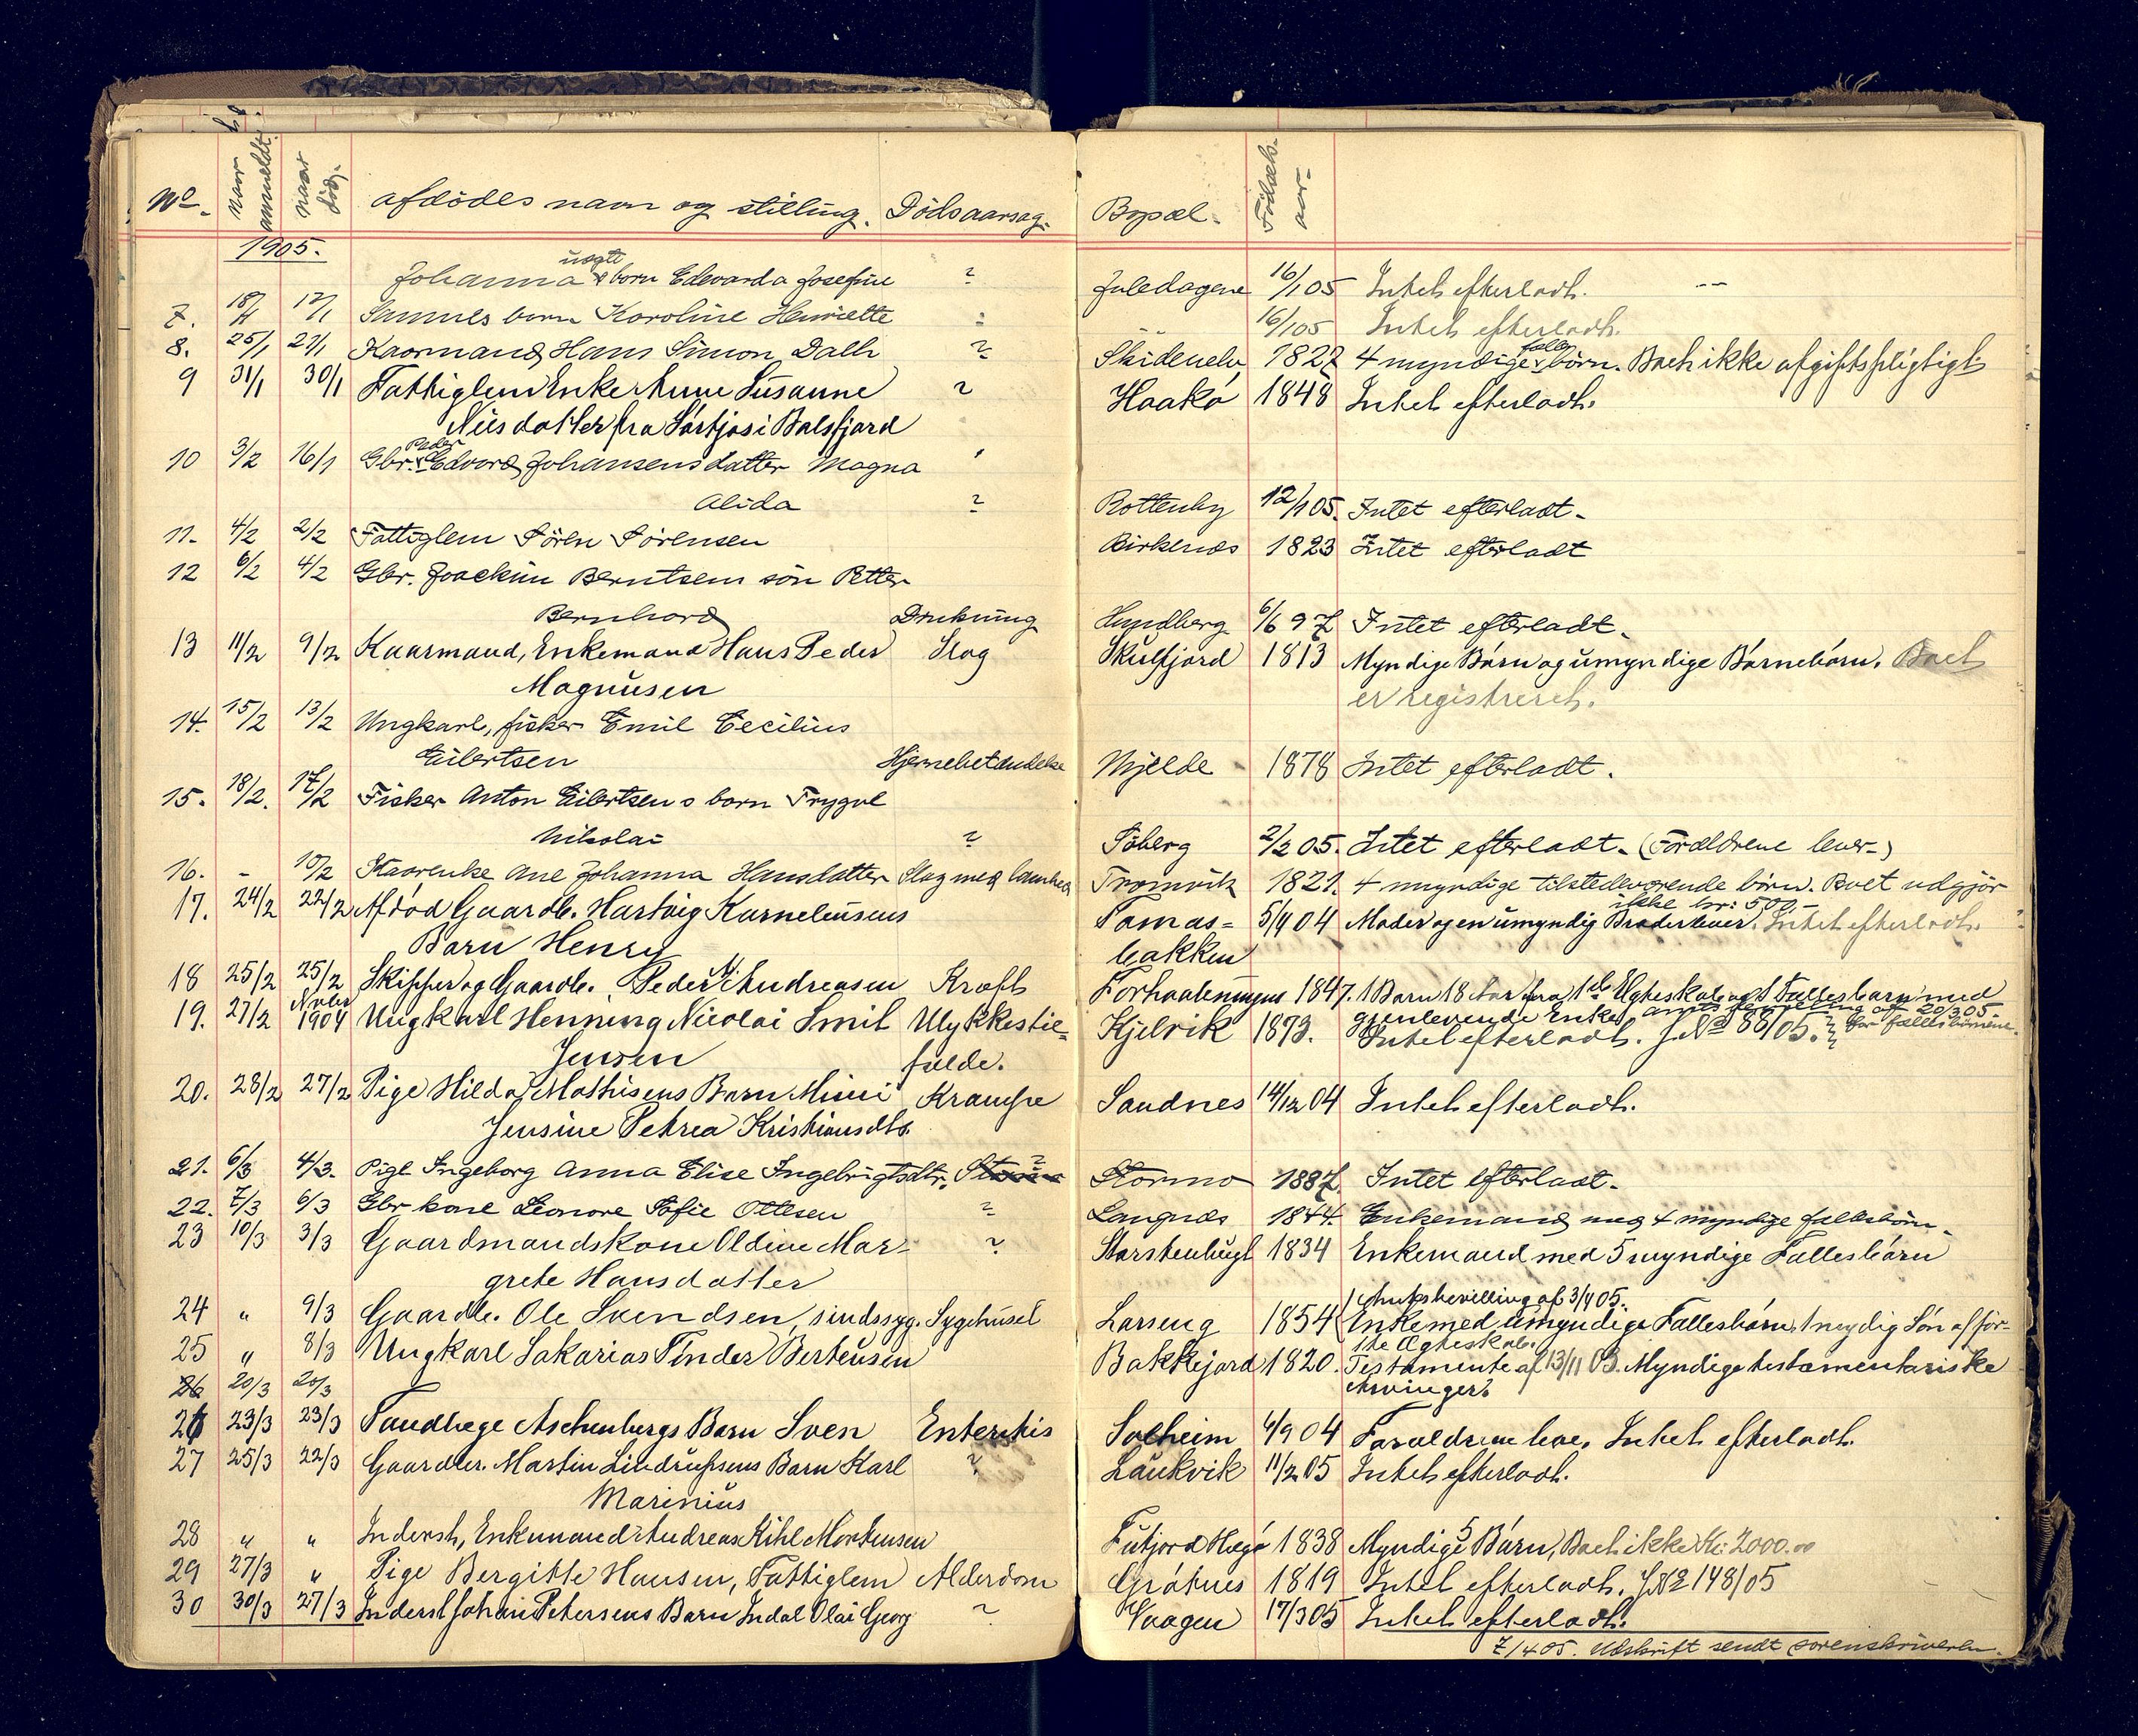 No. Naar anmeldt. naar död. afdödes navn og stilling. Dödsaarsag. Bopæl. Födsels-aar-
1905.
uægte
Johanna s born Edevarda Josefine ? Juledagene 16/1 05 Intet efterladt. --
7. 18/1 17/1 Samues born Karoline Henriette 16/1 05 Intet efterladt.
8. 25/1 21/1 Kaarmand Hans Simon Dall ? Skidenelv 1827 4 myndige fælles børn. Boet ikke afgiftspligtigt
9 31/1 30/1 Fattiglem Enke Anne Susanne ? Haakø 1848 Intet efterladt.
Nilsdatter fra i Balsfjord
10 3/2 16/1 Gbr. Peder Edvard Johansens datter Magna
Alida ? Rottenby 12/1 05. Intet efterladt-
11- 4/2 2/2 Fattiglem Sören Sörensen Birkenes 1823 Intet efterladt
12 6/2 4/2 Gbr. Joackim Berntsens sön Petter
Bernhard Drukning Hundberg 6/6 97 Intet efterladt-
13 11/2 9/2 Kaarmand, Enkemand Hans Peder Slag Skulsfjord 1813 Myndige Børn og umyndige Børnebørn. Boet
Magnusen er registreret.
14. 15/2 13/2 Ungkarl, fisker Emil Cecilius
Eilertsen Hjernebetændelse Mjelde 1878 Intet efterladt.
15. 18/2. 17/2 Fisker Anton Eilertsens born Trygve
Nikolai ? Söberg 2/2 05. Intet efterladt- (Forældrene lever-)
16. - 10/2 Kaarenke Ane Johanna Hansdatter Slag med lamhed Tromvik 1821. 4 myndige tilstedeværende börn. Boet udgjör
ikke kr: 500-
17. 24/2 22/2 Afdød Gaardb. Hartvig Korneliusens Tomas= 5/9 04 Moder og en umyndig Broder lever. Intet efterladt.
Barn Henry bakken
18 25/2 25/2 Skipper og Gaardb. Peder M. Andreasen Kræft Forhaalningens 1847. 1 Barn 18 Aar fra 1ste Ægteskab og 1 Fællesbarn med
gjenlevende Enke. 20/3 05 for fællesbörnene.
19. 27/2 Novbr 1904 Ungkarl Henning Nicolai Smil Ulykkestil= Kjelvik 1873. Intet efterladt. J.No 88/05.
Jensen fælde.
20. 28/2 27/2 Pige Hilda Mathisens Barn Mimi Krampe Sandnes 14/12 04 Intet efterladt.
Jensine Petrea Kristiansdtr.
21. 6/3 4/3. Pige Ingeborg Anna Elise Ingebrigtsdtr. ? Stormo 1887. Intet efterladt-
22. 7/3 6/3 Gbr kone Leonore Sofie Ottesen ? Langnes 1844. Enkemand med 4 myndige fællesbörn-
23 10/3 3/3 Gaardmandskone Oldine Mar- ? Storstenbugt 1834 Enkemand med 5 myndige Fællesbørn
grete Hansdatter
24 " 9/3 Gaardb. Ole Svendsen, sindssyg. Sygehuset Larseng 1854 Enke med umyndige Fællesbørn, 1 myndig Søn af før-
Amtsbevilling af 3/4 05.
1ste Ægteskab.
25 " 8/3 Ungkarl Sakarias Pinder Berteusen Bakkejord 1820. Testamente af 13/11 03. Myndige testamentariske
Arvinger.
26 20/3 20/3
26 23/3 23/3 Tandlæge Aschenbergs Barn Sven Enteritis Solheim 4/9 04 Forældrene leve. Intet efterladt.
27 25/3 22/3 Gaardbr. Martin Lindrupsens Barn Karl ? Laukvik 11/2 05 Intet efterladt.
Marinius
28 " " Inderst, Enkemand Andreas Kihl Mortensen Futjord Hegø 1838 Myndige 5 Børn, Boet ikke Kr. 2000.00
29 27/3 " Pige Bergitte Hansen, Fattiglem Alderdom Grøtnes 1819 Intet efterladt. J.No 148/05
30 30/3 27/3 Inderst Johan Petersens Barn Indal Olai Georg ~ Vaagen 17/3 05 Intet efterladt.
7/4 05. Udskrift sendt sorenskriveren.